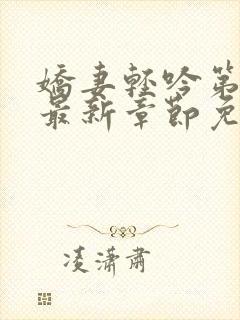 嬌妻輕吟第
最新章節免
凌瀟肅